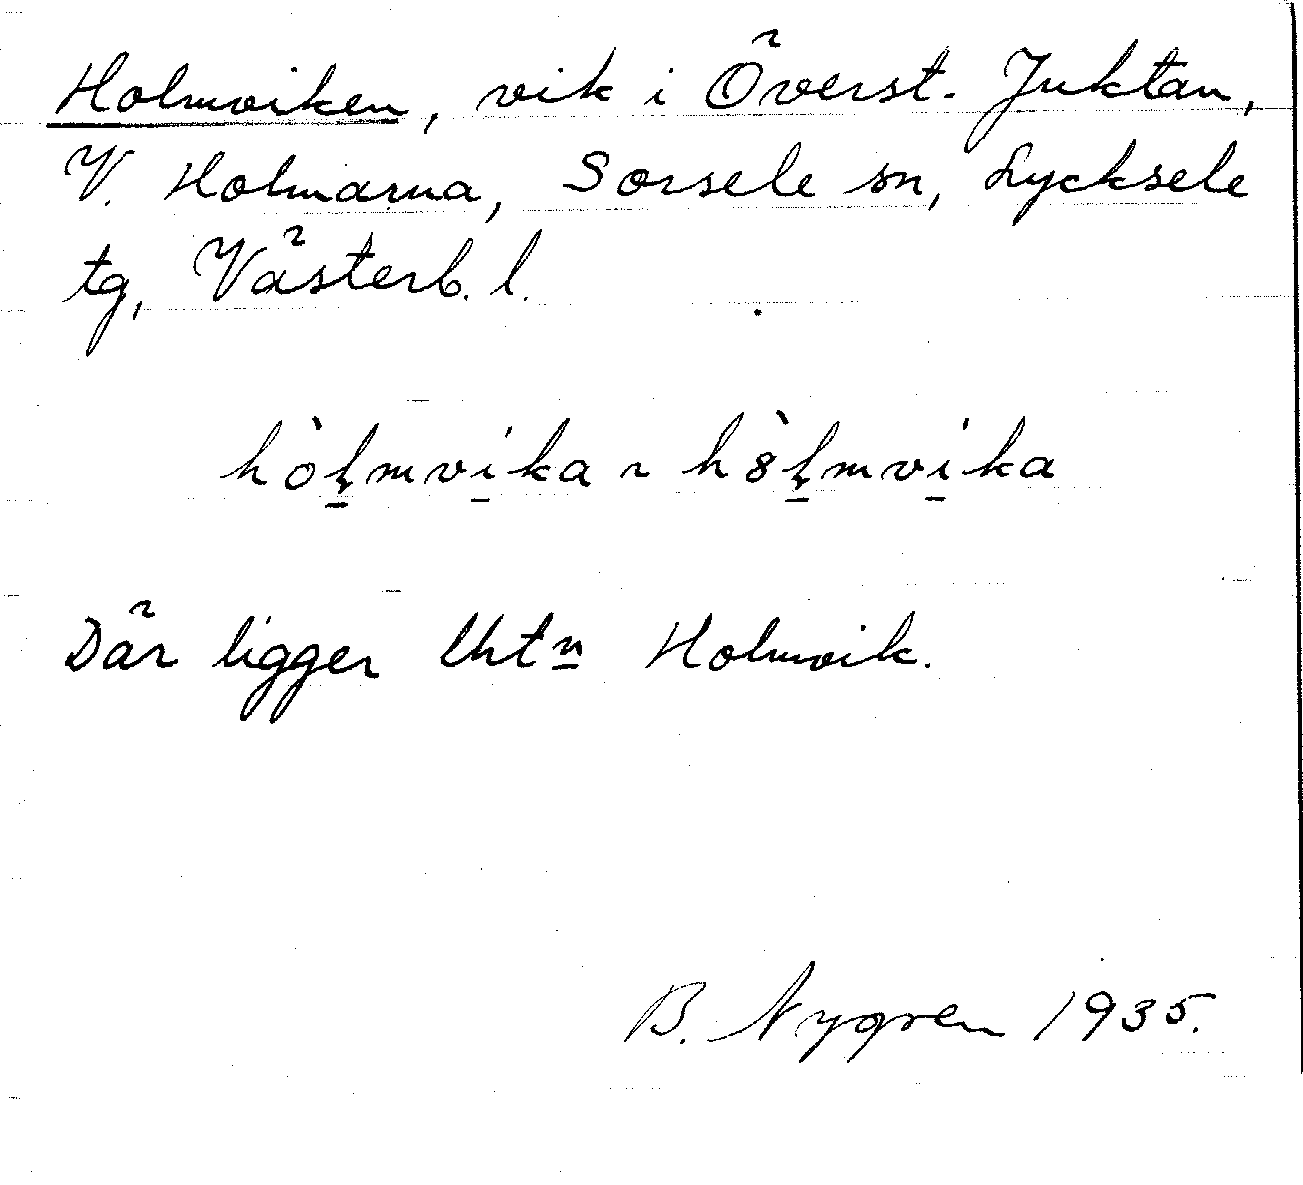 Holmviken, vik i Överst. Juktan,
V. Holmarna, Sorsele sn, Lycksele
tg, Västerb. l.
hòl̥mvi̱ka ~ hö̀l̥mvi̱ka
Där ligger lhtn Holmvik.
B. Nygren 1935.